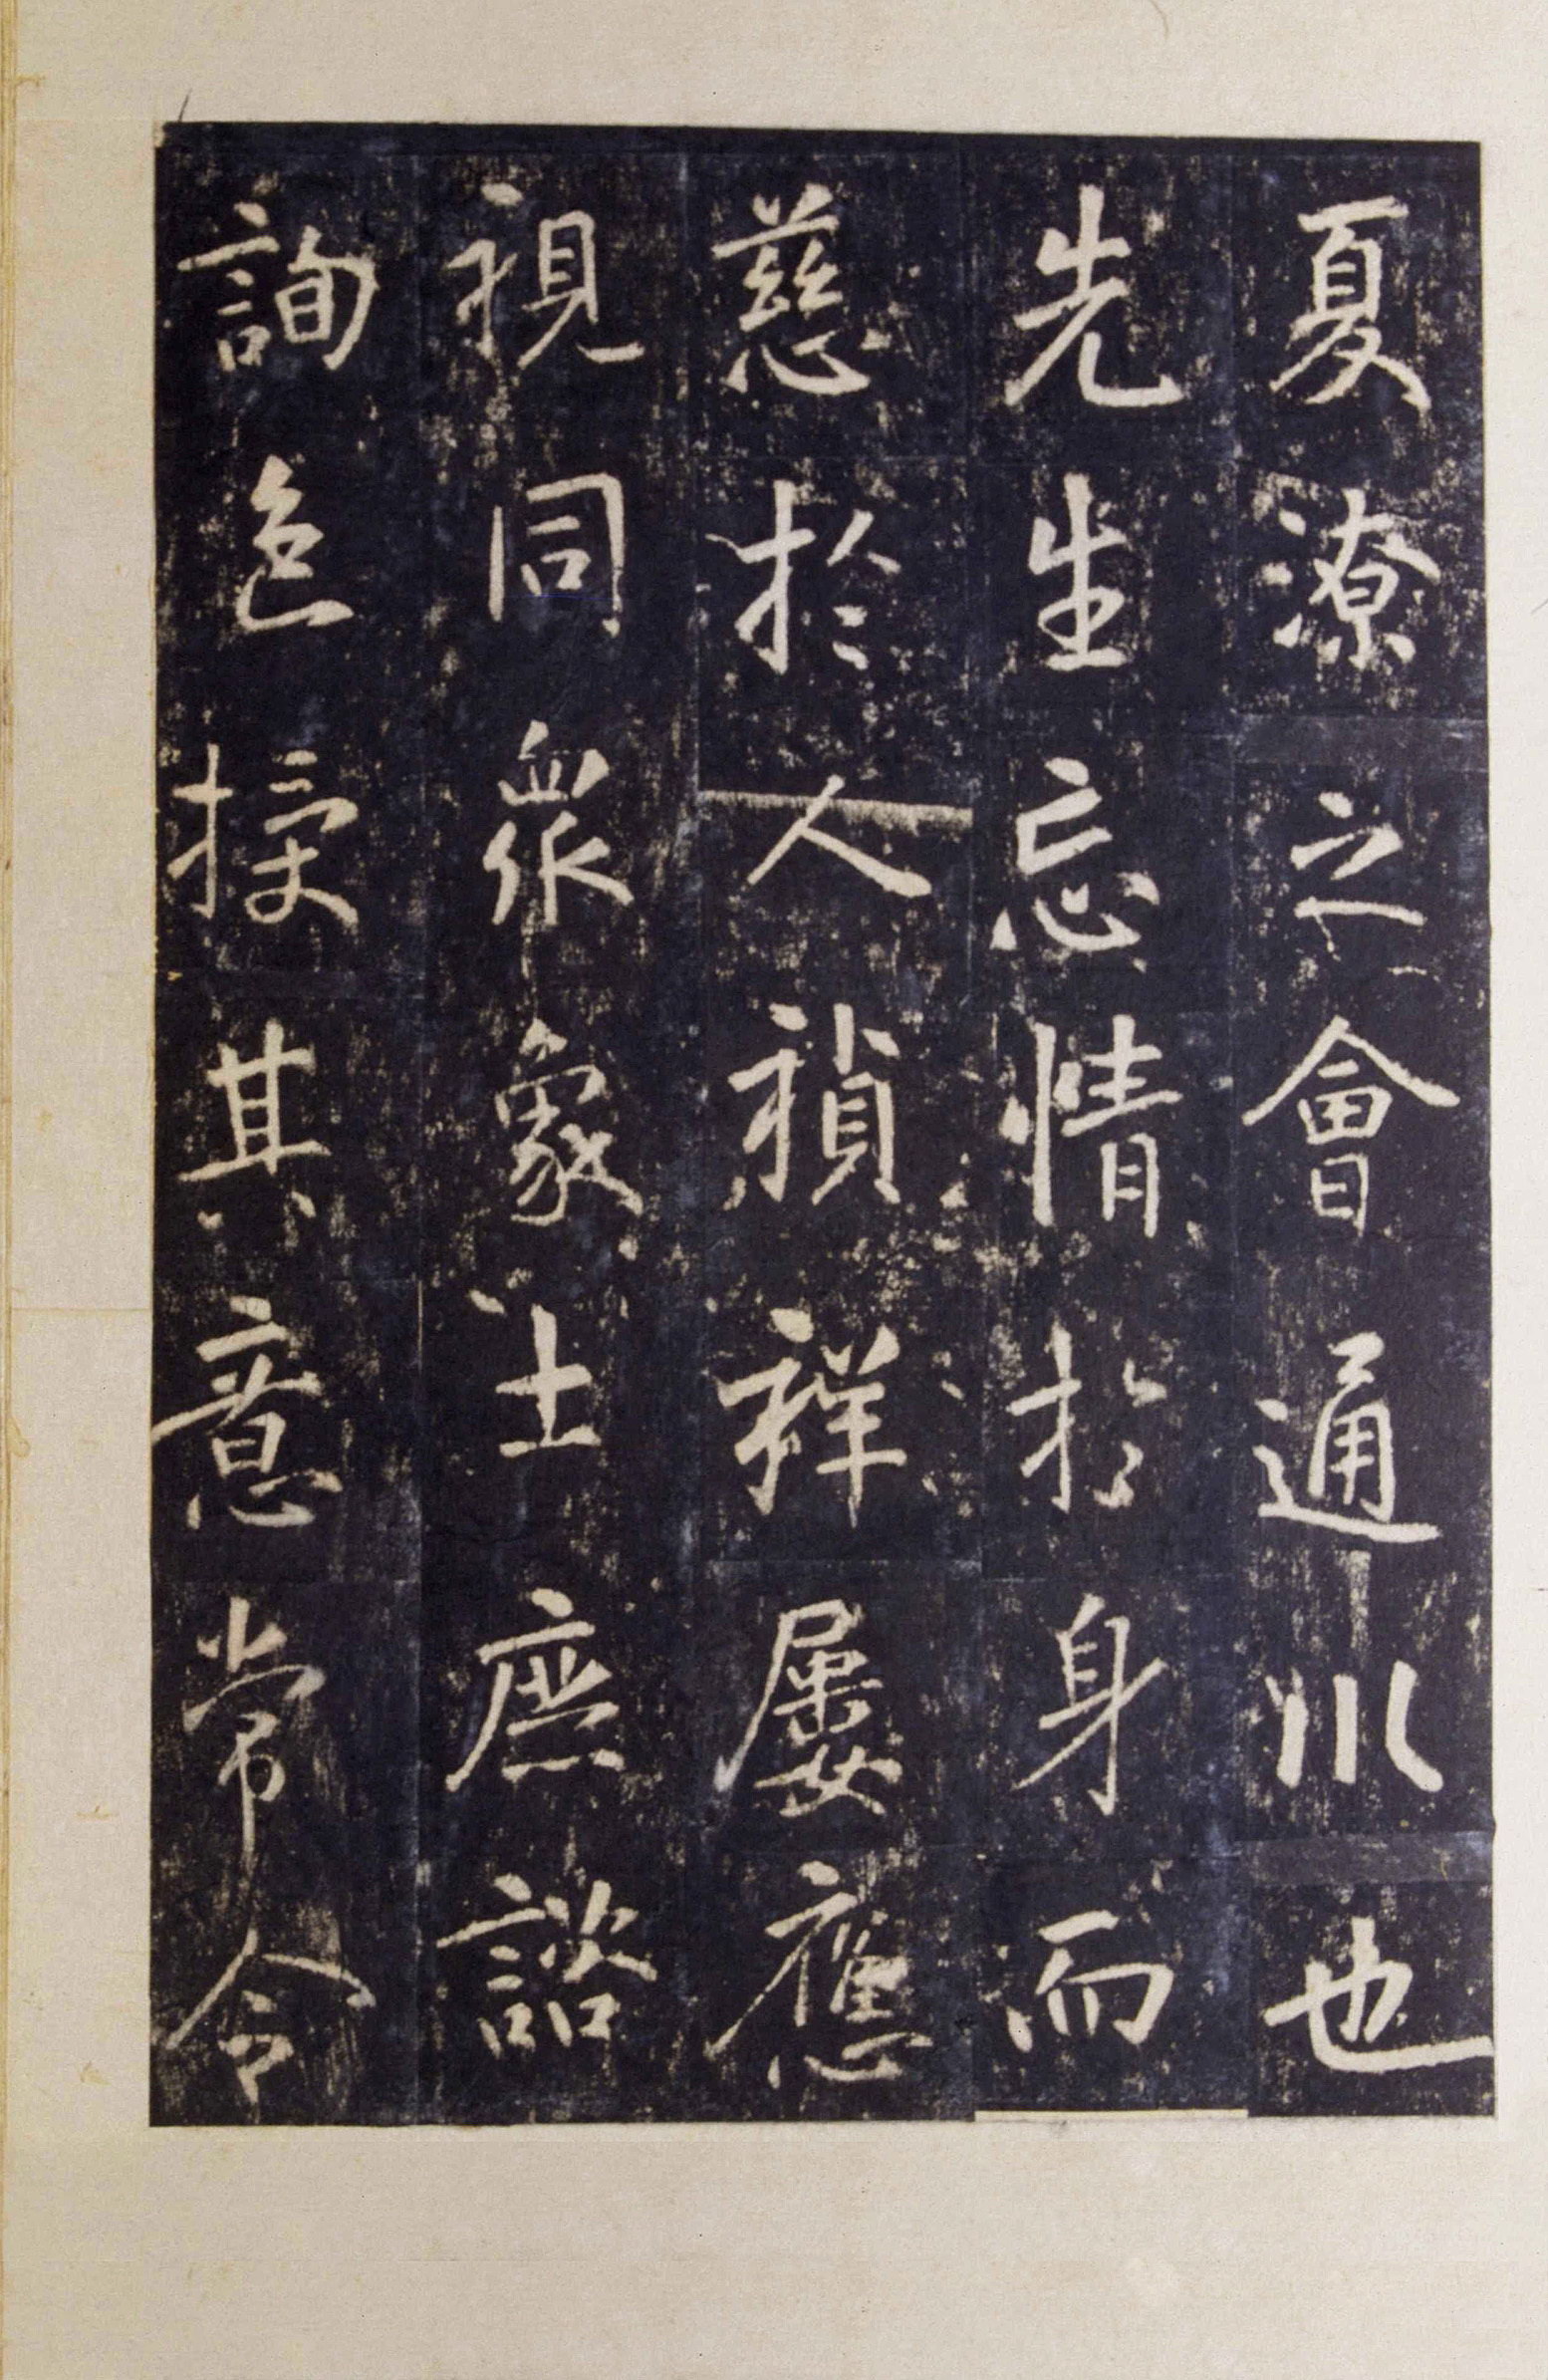 夏潦之會通川也
先生忘情於身而
慈於人禎祥屢應
視同衆象士庶諮
詢色授其意常令